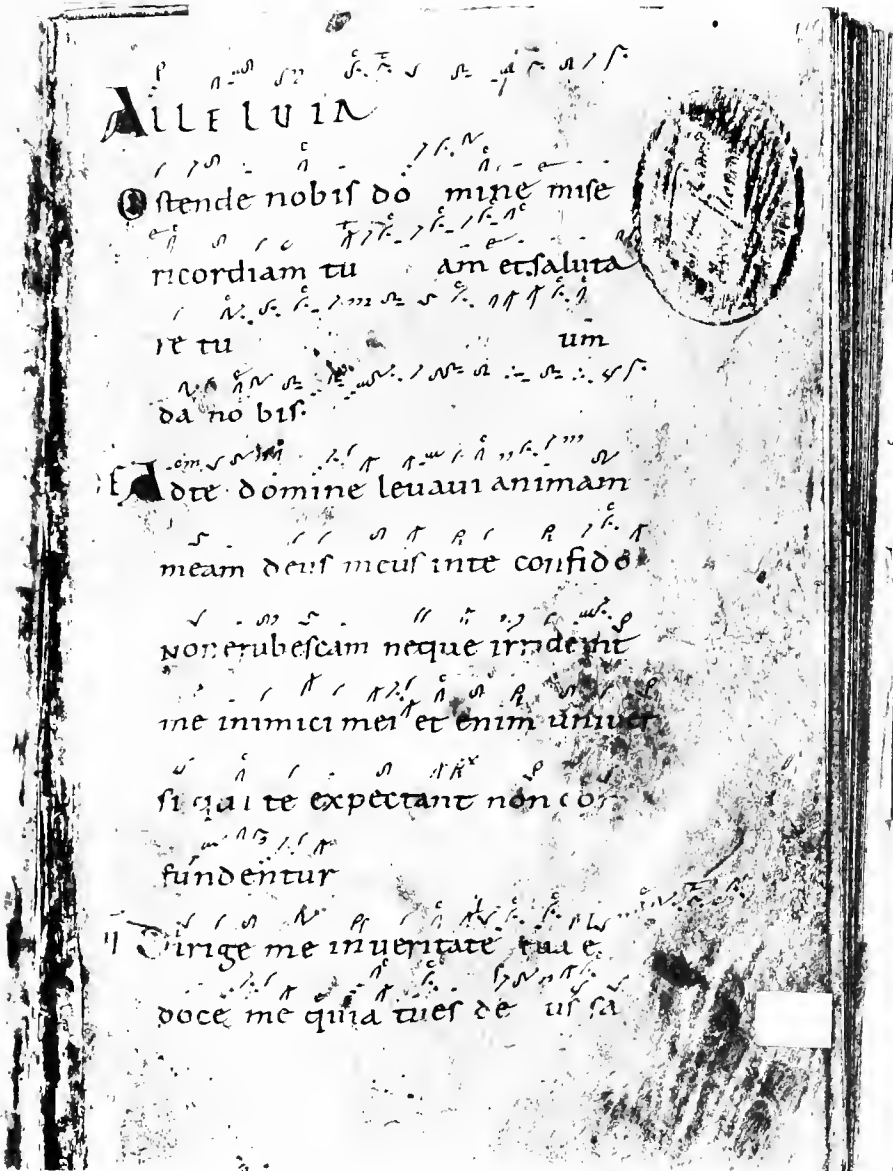 ALLELUIA
Ostende nobis do mine mise
ricordiam tu am et saluta
re tu um
da no bis.
Adte domine levaui animam
meam deus meus inte confido
Non erubescam neque irrideant
me inimici mei et enim uniuer
si qui te expectant non con
fundentur
Dirige me inueritate tua e
doce me quia tues de us sa